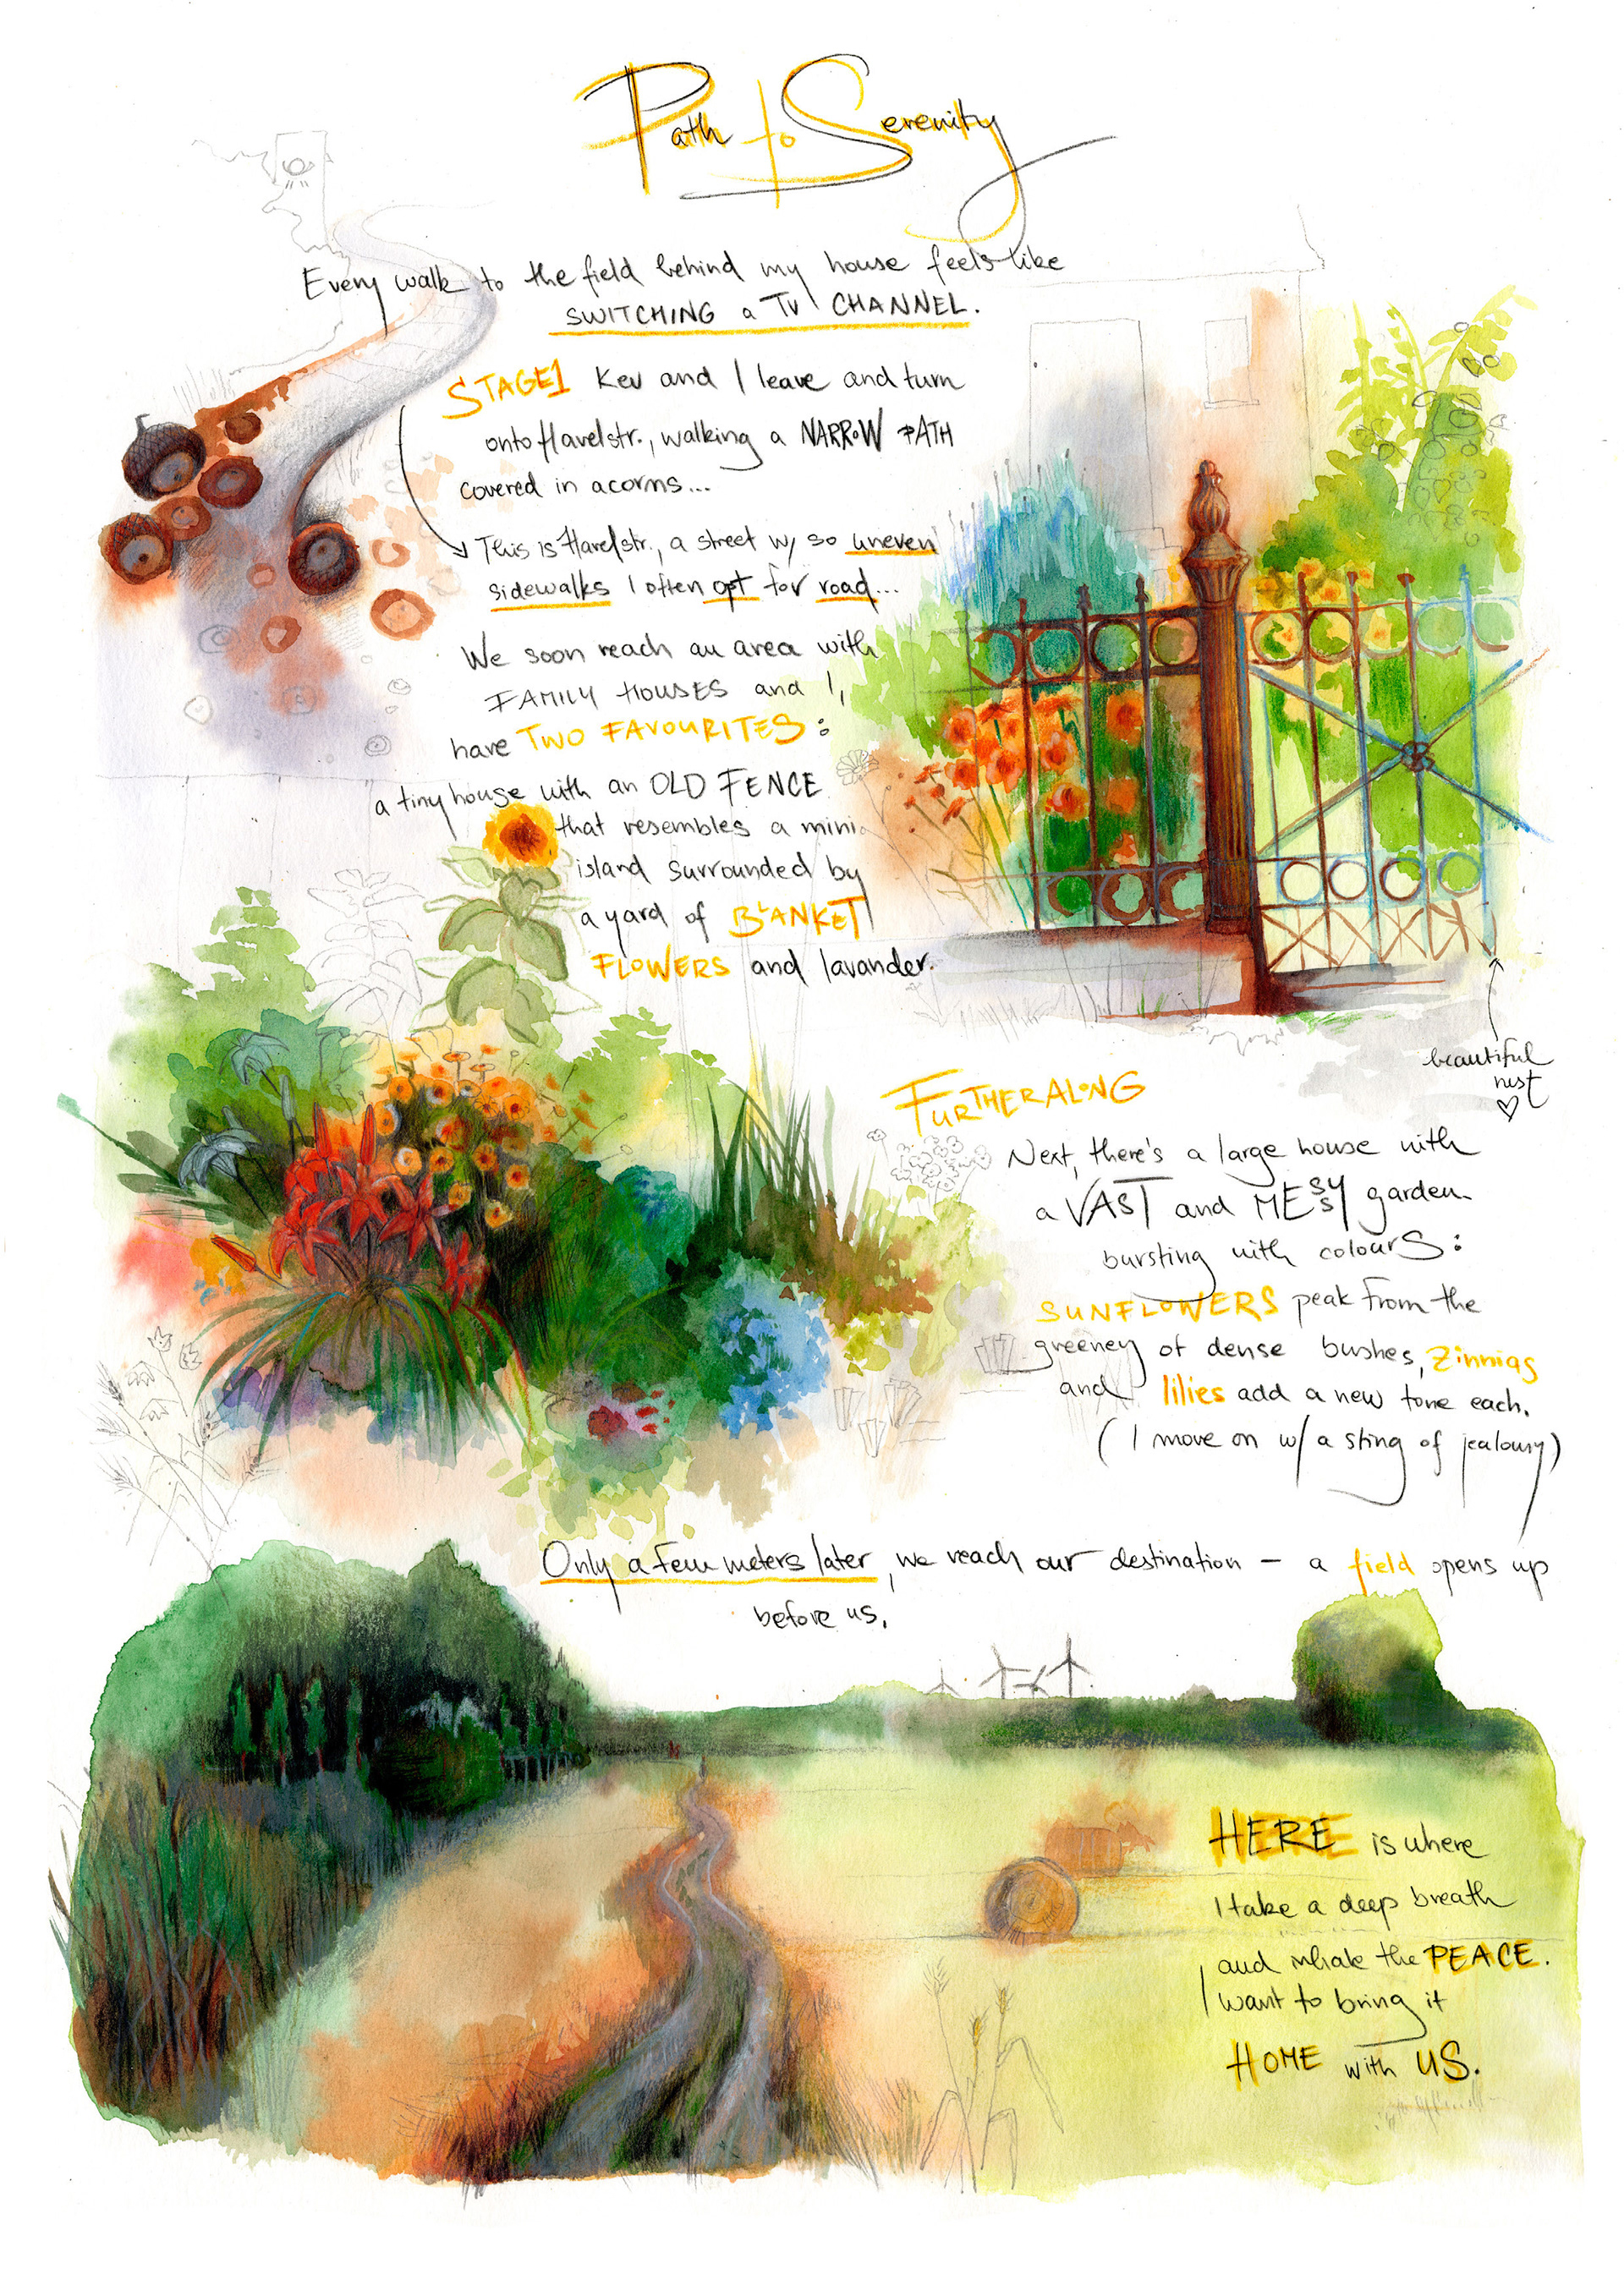 Path to Serenity
Every walk to the field behind my house feels like
SWITCHING a TV CHANNEL.
STAGE1 Kev and I leave and turn
onto Havelstr., walking a NARROW PATH
covered in acorns...
This is Havelstr., a street w/ so uneven
sidewalks I often opt for road...
We soon reach an area with
FAMILY HOUSES and I,
have TWO FAVOURITES:
a tiny house with an OLD FENCE
that resembles a mini
island surrounded by
a yard of BLANKET
FLOWERS and lavander.
beautiful
rust
FURTHER ALONG
Next, there's a large house with
a VAST and MESSY garden
bursting with colours:
SUNFLOWERS peak from the
greeney of dense bushes, zinnias
and lilies add a new tone each.
(I move on w/ a sting of jealousy)
Only a few meters later, we reach our destination – a field opens up
before us.
HERE is where
I take a deep breath
and inhale the PEACE.
I want to bring it
HOME with US.